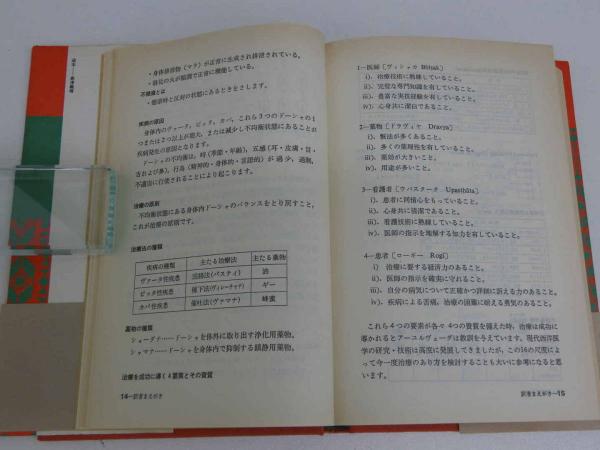 ・身体排泄物(マラ)が正常に生成され排泄されている。
・消化の火が順調で正常に機能している。
不健康とは
・健康時と反対の状態にあるときをさします。
疾病の原因
身体内のヴァータ、ピッタ、カパ、これら3つのドーシャの1
つまたは2つ以上が増大、または減少し不均衡状態にあることが
疾病発生の原因となります。
ドーシャの不均衡は、時(季節・年齢)、五感(耳・皮膚・目・
舌および鼻)、行為(精神的・身体的・言語的)が過少、過剰、
不適当に行使されることにより起こります。
治療の原則
不均衡状態にある身体内ドーシャのバランスをとり戻すこと、
これが治療の原則です。
治療法の種類
疾病の種類 主たる治療法 主たる薬物
ヴァータ性疾患 浣腸法(バスティ) 油
ピッタ性疾患 催下法(ヴィレーチャナ) ギー
カパ性疾患 催吐法(ヴァマナ) 蜂蜜
薬物の種類
ショーダナ……ドーシャを体外に取り出す浄化用薬物。
シャマナ……ドーシャを身体内で抑制する鎮静用薬物。
治療を成功に導く4要素とその資質
14—訳者まえがき
1—医師〔ヴィシャカ Bhiṣak〕
i)、治療技術に熟練していること。
ii)、完璧な専門知識を有していること。
iii)、豊富な実技経験を有していること。
iv)、心身共に潔白であること。
2—薬物〔ドラヴィヤ Dravya〕
i)、製法が多くあること。
ii)、多くの薬理性を有していること。
iii)、薬効が大きいこと。
iv)、用途が多いこと。
3—看護者〔ウパスタータ Upasthāta〕
i)、患者に同情心をもっていること。
ii)、心身共に清潔であること。
iii)、看護技術に熟練していること。
iv)、医師の指示を理解する知力を有していること。
4—患者〔ローギー Rogī〕
i)、治療に要する経済力のあること。
ii)、医師の指示を確実に守れること。
iii)、自分の病気について正確かつ詳細に訴える力のあること。
iv)、疾病による苦痛、治療の困難に耐える勇気のあること。
これら4つの要素が各々4つの資質を備えた時、治療は成功に
導かれるとアーユルヴェーダは教訓を与えています。現代西洋医
学の研究・技術は高度に発展してきましたが、この16の尺度によ
って今一度治療のあり方を検討することも大いに参考になると思
います。
訳者まえがき—15